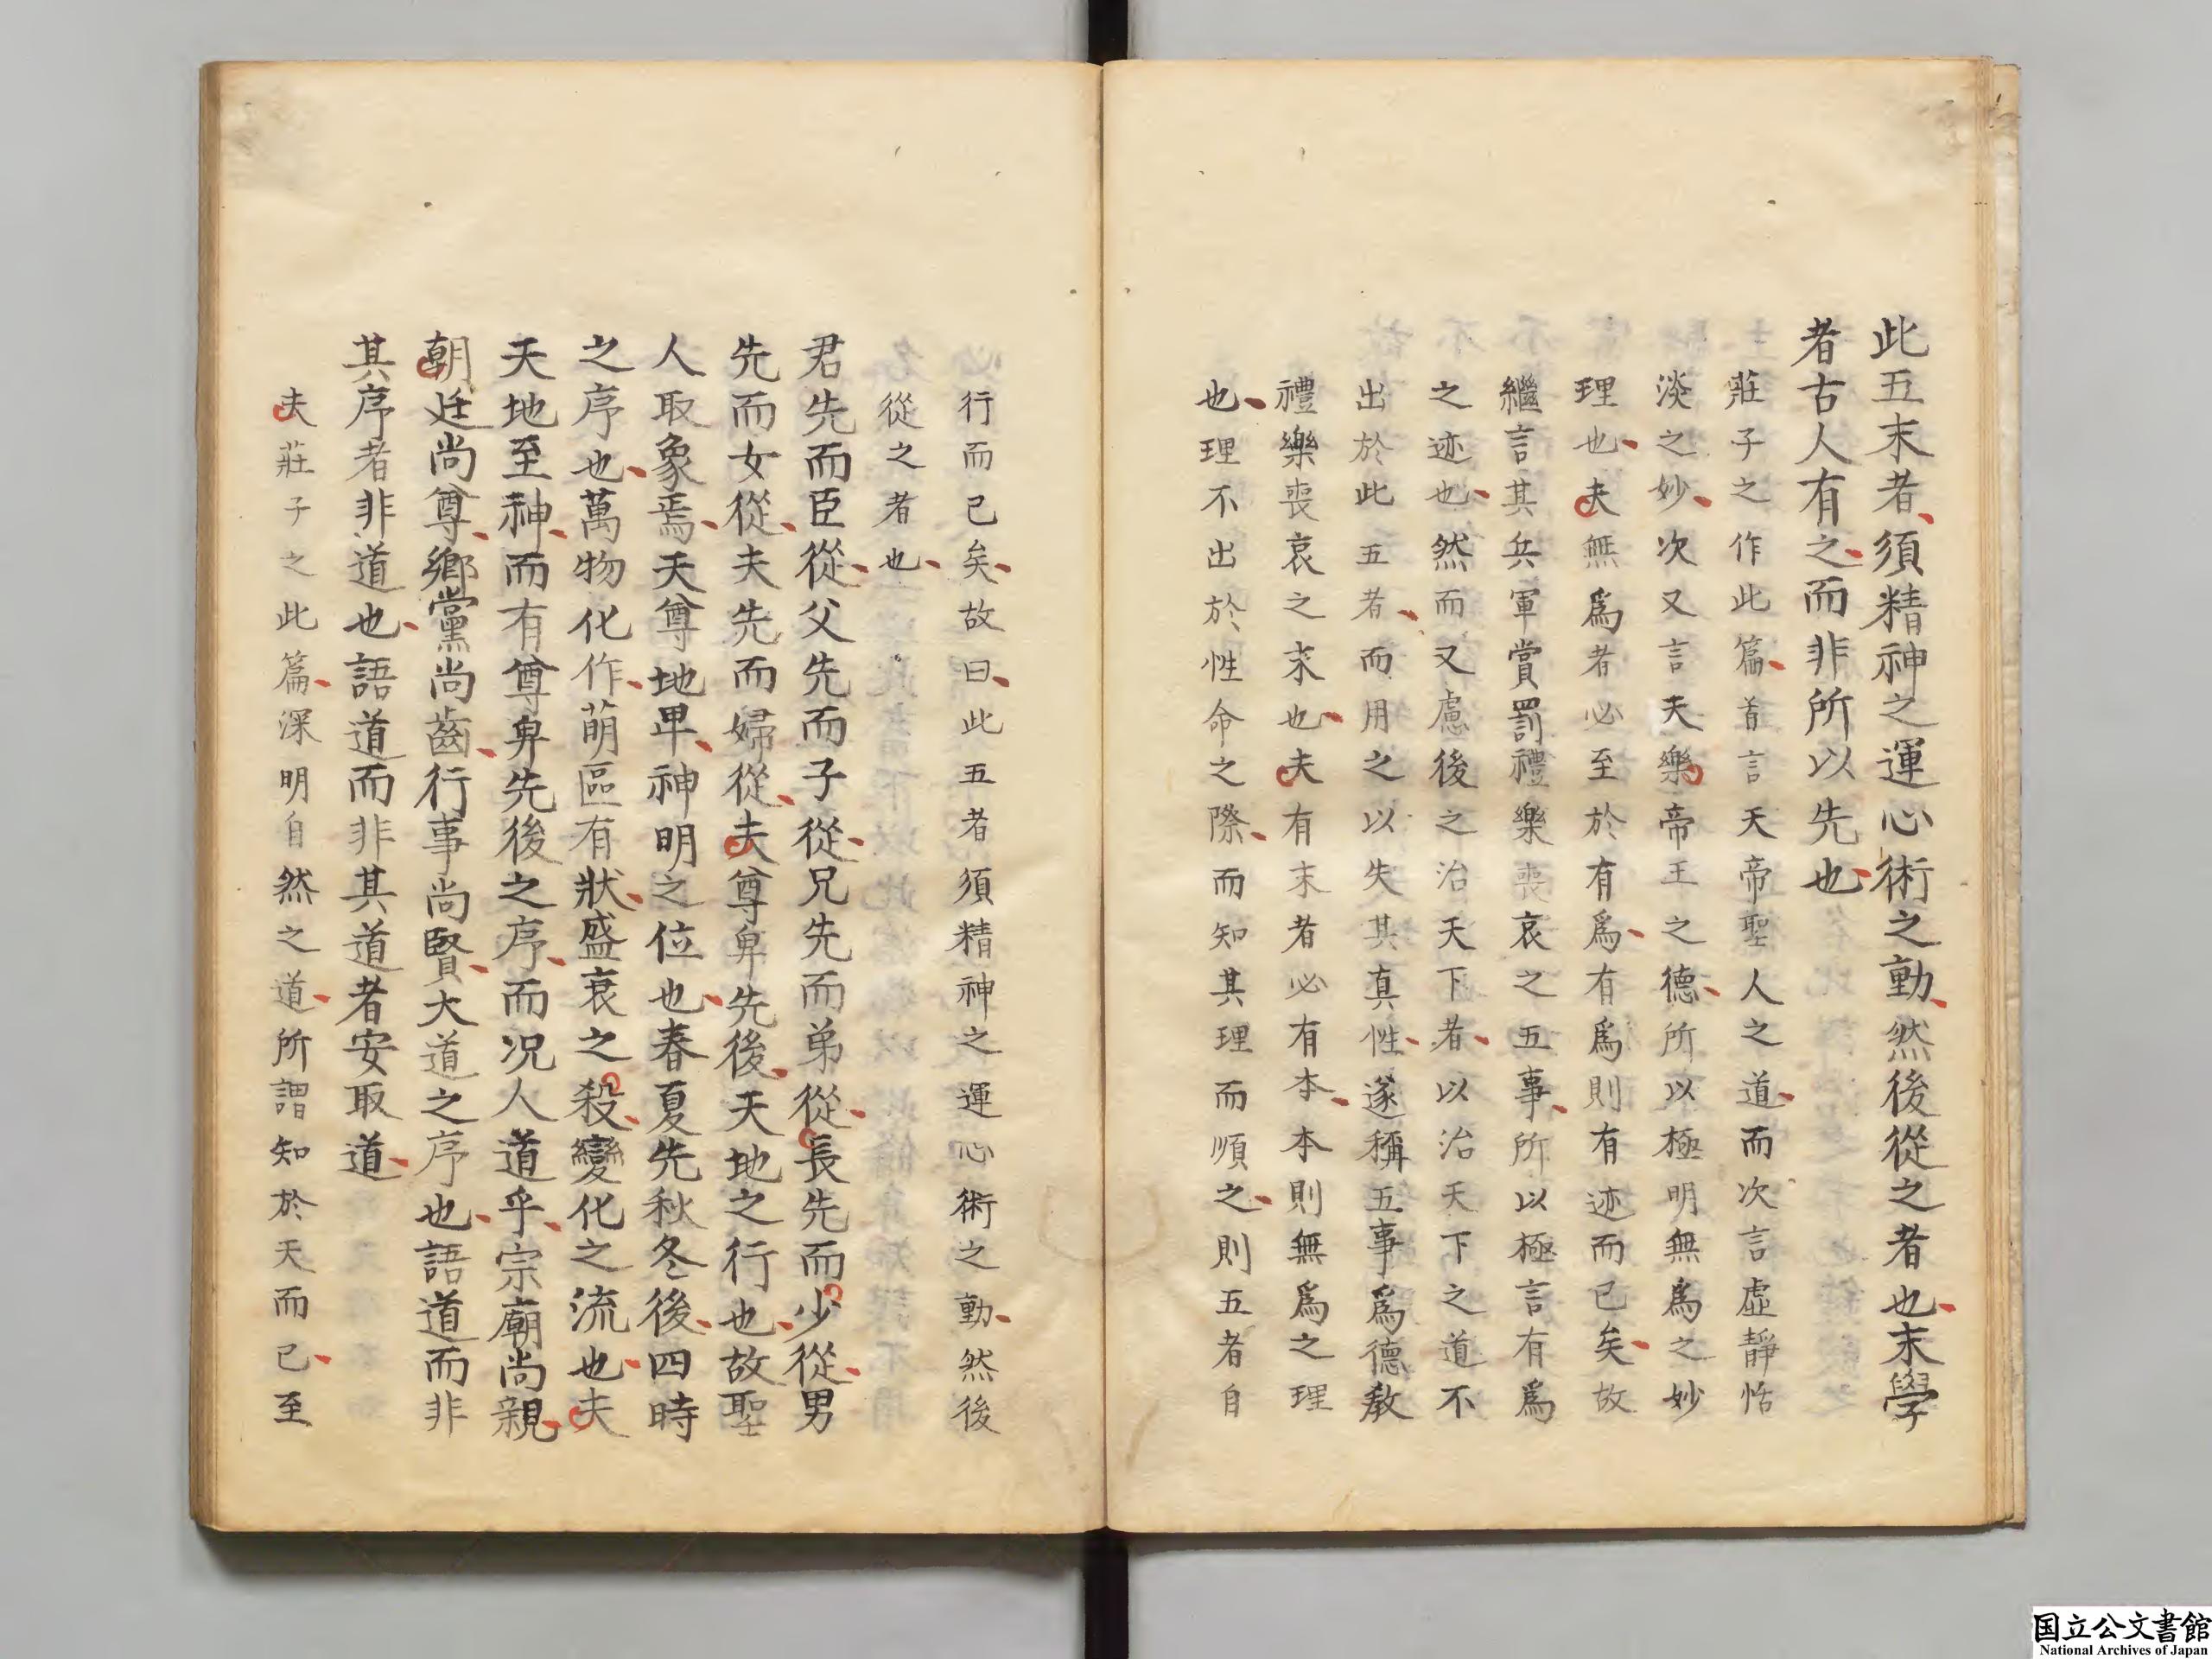 此五末者須精神之運心術之動然後從之者也末學
者古人有之而非所以先也
莊子之作此篇首言天帝聖人之道而次言虛靜恬
淡之妙次又言夫樂帝王之德所以極明無爲之妙
理也夫無爲者必至於有爲有爲則有迹而已矣故
繼言其兵軍賞罰禮樂喪哀之五事所以極言有爲
之迹也然而又慮後之治天下者以治天下之道不
出於此五者而用之以失其真性遂稱五事爲德教
禮樂喪哀之末也夫有末者必有本本則無爲之理
也理不出於性命之際而知其理而順之則五者自
行而已矣故曰此五者須精神之運心術之動然後
從之者也
君先而臣從父先而子從兄先而弟從長先而少從男
先而女從夫先而婦從夫尊卑先後天地之行也故聖
人取象焉天尊地卑神明之位也春夏先秋冬後四時
之序也萬物化作萌區有狀盛衰之殺變化之流也夫
天地至神而有尊卑先後之序而況人道乎宗廟尚親
朝廷尚尊鄉黨尚齒行事尚賢大道之序也語道而非
其序者非道也語道而非其道者安取道
夫莊子之此篇深明自然之道所謂知於天而已至
国立公文書館
National Archives of Japan